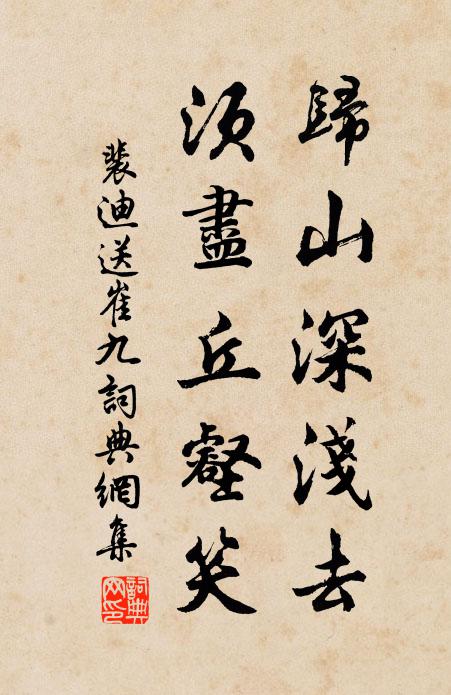 歸山深淺去
須盡丘壑笑
裴迪送崔九詞典網集
詞典
网印